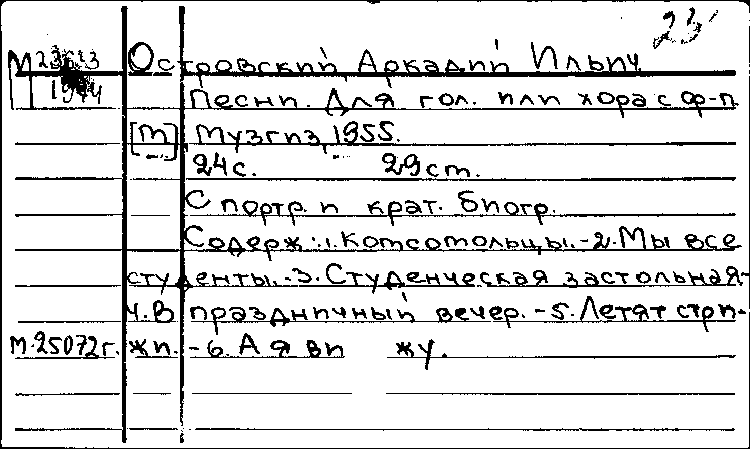 23
М 23613 Островский, Аркадий Ильич
1944 Песни. Для гол. или хора с ф-п.
[М], Музгиз, 1955.
24 с. 29 см.
С портр. и крат. биогр.
Содерж.: 1. Комсомольцы. - 2. Мы все
студенты. - 3. Студенческая застольная. -
4. В праздничный вечер. - 5. Летят стри-
М. 25072 г. жи. - 6. А я ви жу.